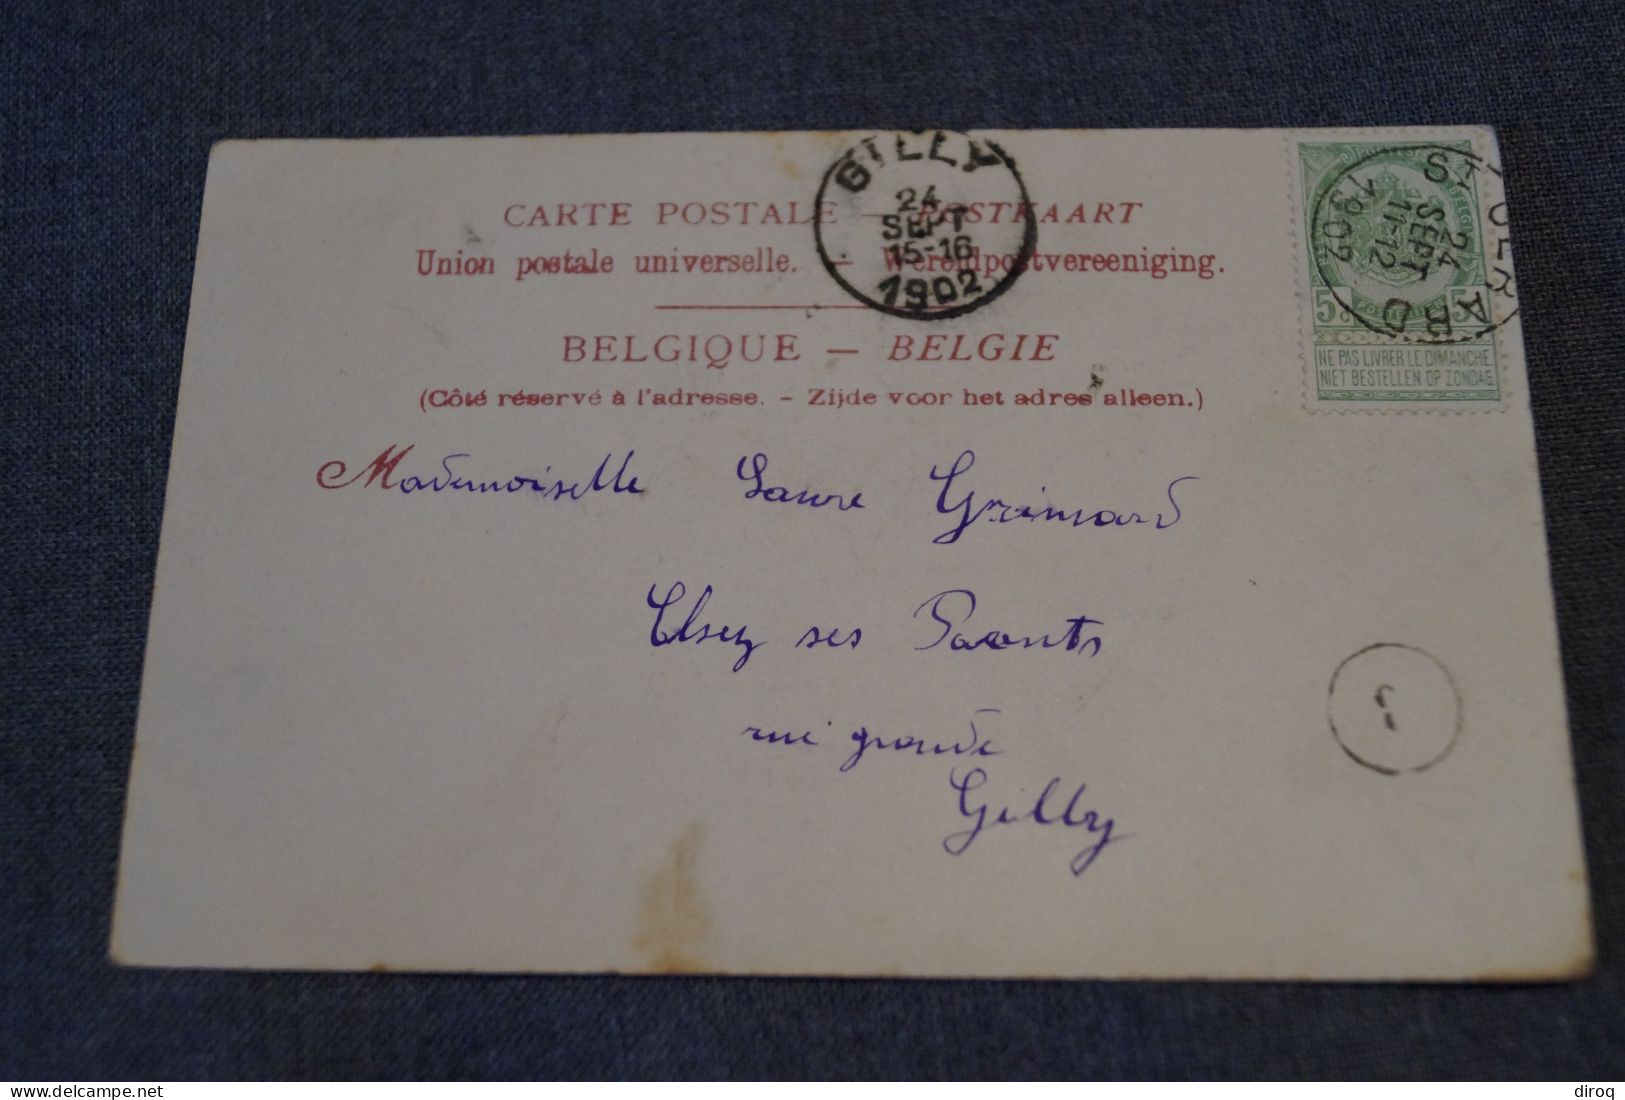 GILLY
24
SEPT
15-16
1902
ST GÉRARD
24
SEPT
11-12
1902
BELGI
5 5
NE PAS LIVRER LE DIMANCHE
NIET BESTELLEN OP ZONDAG
CARTE POSTALE — POSTKAART
Union postale universelle. — Wereldpostvereeniging.
BELGIQUE — BELGIE
(Côté réservé à l'adresse. - Zijde voor het adres alleen.)
Mademoiselle Laure Grimard
Chez ses Parents
rue grande
Gilly
delcampe.net
diroq